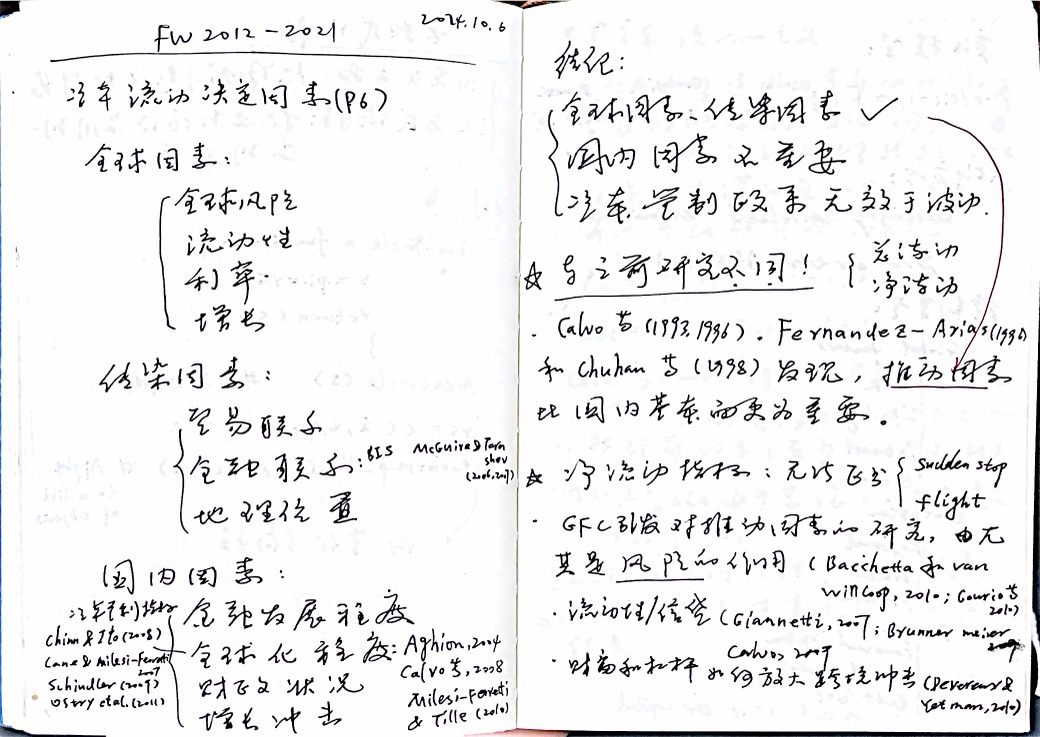 2024.10.6
FW 2012-2021
资本流动决定因素(P6)
全球因素:
全球风险
流动性
利率
增长
传染因素:
贸易联系
金融联系: BIS McGuire & Tarashev (2006,2007)
地理位置
国内因素:
金融发展程度
资本管制指标
Chinn & Ito (2008)
Lane & Milesi-Ferretti 2007
Schindler (2009)
Ostry et al. (2011)
全球化程度: Aghion, 2004
Calvo等, 2008
财政状况
Milesi-Ferretti
& Tille (2010)
增长冲击
结论:
全球因素、传染因素 ✓
国内因素不重要
资本管制政策无效于波动.
☆ 与之前研究不同!
总流动
净流动
· Calvo等(1993,1996). Fernandez-Arias(1996)
和 Chuhan等(1998)发现, 推动因素
比国内基本面更为重要。
☆ 净流动指标: 无法区分
sudden stop
flight
· GFC引发对推动因素的研究, 由尤
其是风险的作用 (Bacchetta和van
Wincoop, 2010; Gourio等
2010)
· 流动性/信贷 (Giannetti, 2007; Brunnermeier
2009
Calvo, 2009
· 财富和杠杆如何放大跨境冲击 (Devereux &
Yetman, 2010)